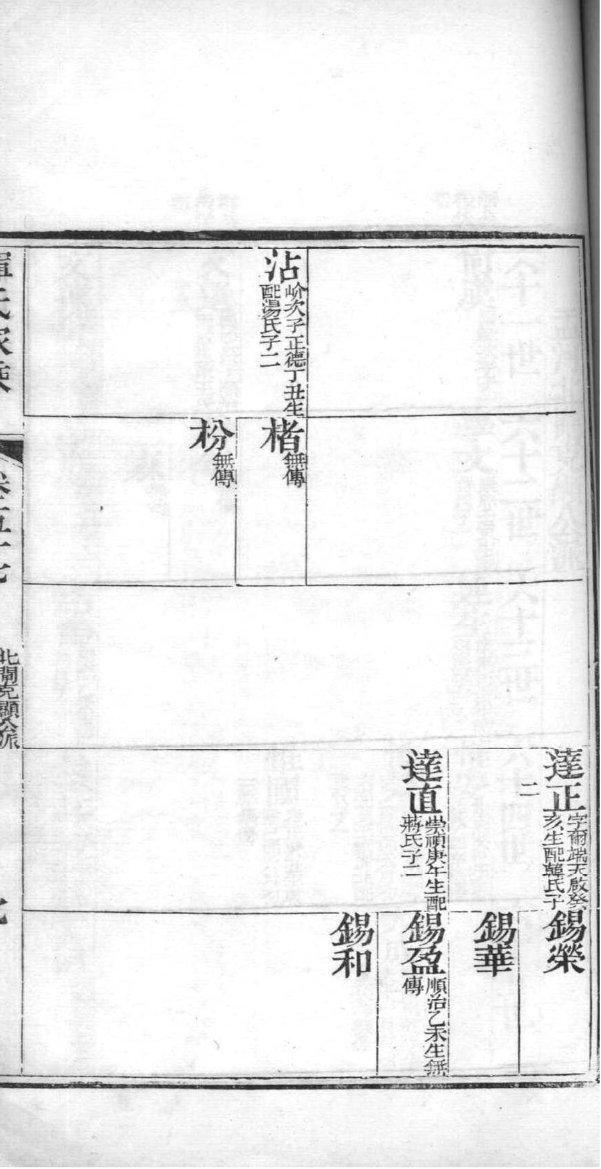 沾
岭次子正德丁丑生
配湯氏子二
楮
無傳
枌
無傳
達正
字爾端天啟癸
亥生配韓氏子
二
達直
崇禎庚午生配
蔣氏子二
錫榮
錫華
錫盈
順治乙未生無
傳
錫和
氏家乘
卷五十七
北閘克顯公派